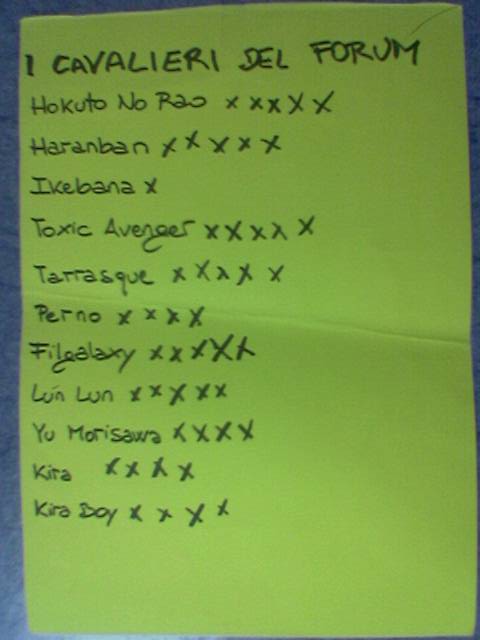 I CAVALIERI DEL FORUM
Hokuto No Rao x x x x x
Haranban x x x x x
Ikebana x
Toxic Avenger x x x x x
Tarrasque x x x x x
Perno x x x x
Filgalaxy x x x x x
Lún Lun x x x x x
Yu Morisawa x x x x
Kira x x x x
Kira Boy x x x x